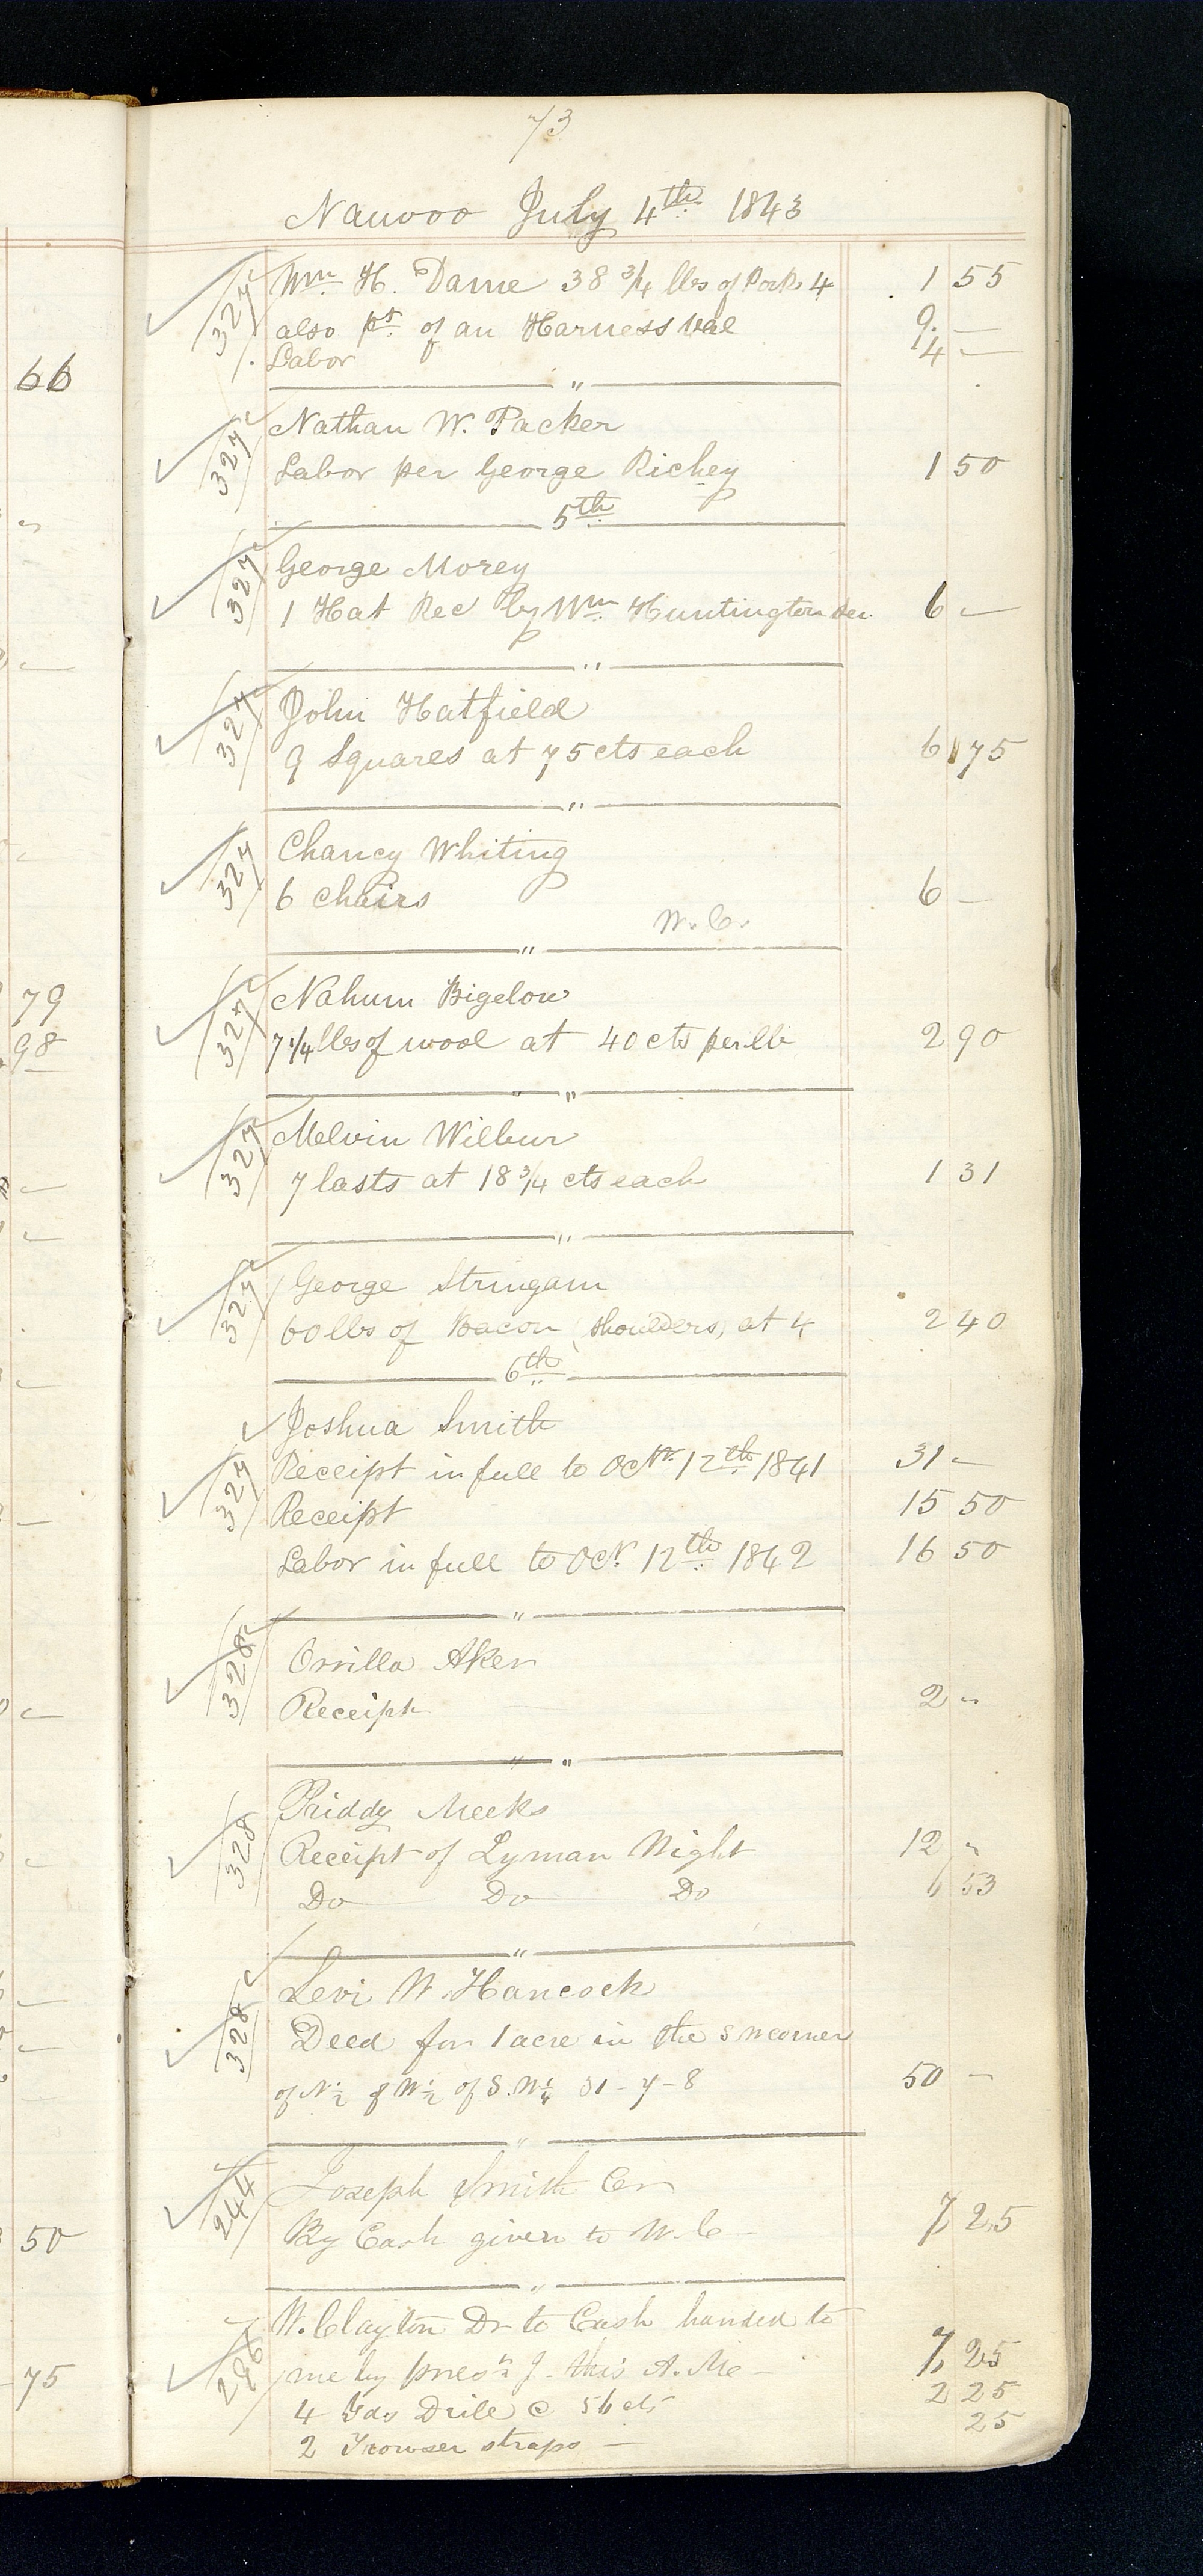 66
"
79
98
50
75
73
Nauvoo July 4th 1843
327 Wm. H. Dame 38 3/4 lbs of Pork 4 1 55
also pt. of an Harness val 9 —
Labor 4 —
"
327 Nathan W. Packer
Labor per George Richey 1 50
5th
327 George Morey
1 Hat Rec by Wm. Huntington Sen 6 —
"
327 John Hatfield
9 Squares at 75 cts each 6 75
"
327 Chancy Whiting
6 chairs 6 —
W. C.
"
327 Nahum Bigelow
7 1/4 lbs of wool at 40 cts per lb 2 90
"
327 Melvin Wilbur
7 lasts at 18 3/4 cts each 1 31
"
327 George Stringam
60 lbs of Bacon (shoulders) at 4 2 40
6th
Joshua Smith
327 Receipt in full to Octr. 12th 1841 31 —
Receipt 15 50
Labor in full to Oct. 12th 1842 16 50
"
328 Orrilla Aker
Receipt 2 "
"
Priddy Meeks
328 Receipt of Lyman Wight 12 "
Do Do Do 6 53
"
Levi W. Hancock
328 Deed for 1 acre in the S W corner
of N 1/2 of W 1/2 of S. W 1/4 31 - 7 - 8 50 —
"
244 Joseph Smith Cr
By Cash given to W. C — 7 25
"
W. Clayton Dr to Cash handed to
296 me by J - this A. M — 7 25
4 Yds Drill @ 56 cts 2 25
2 Trowser straps — 25